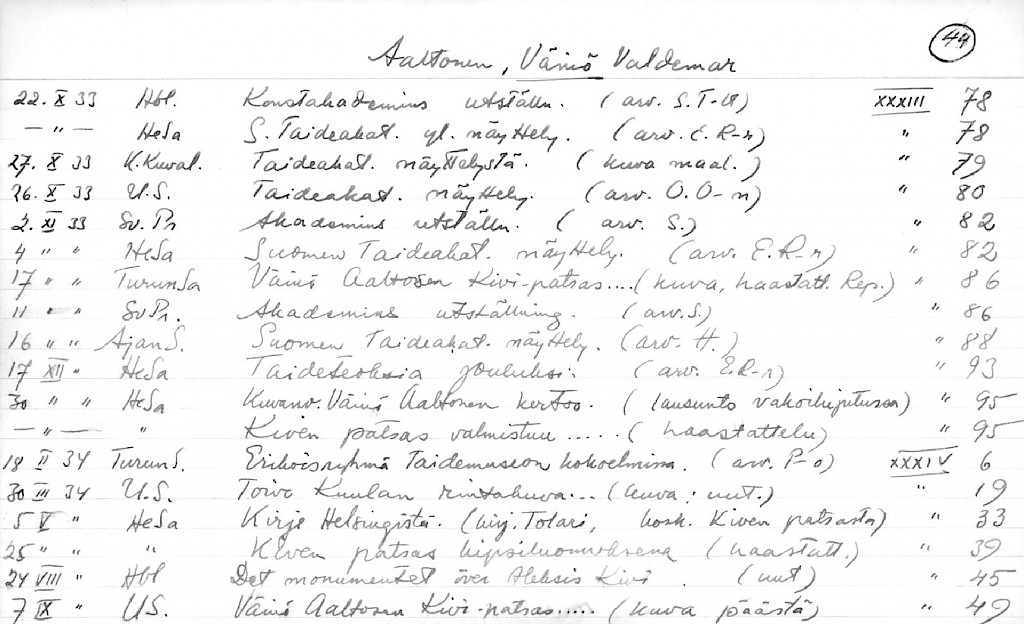 44
Aaltonen, Väinö Valdemar
22. X 33 Hbl. Konstakademins utställn. (arv. S. T-ll) XXXIII 78
— " — HeSa S. Taideakat. yl. näyttely. (arv. E. R-r) " 78
27. X 33 K. Kuval. Taideakat. näyttelystä. (kuva maal.) " 79
26. X 33 U.S. Taideakat. näyttely. (arv. O. O-n) " 80
2. XI 33 Sv. Pr Akademins utställn. (arv. S.) " 82
4 " " HeSa Suomen Taideakat. näyttely. (arv. E. R-r) " 82
17 " " TurunSa Väinö Aaltosen Kivi-patsas.... (kuva, haastatt. Rep.) " 86
11 " " SvPr. Akademins utställning. (arv. S.) " 86
16 " " AjanS. Suomen Taideakat. näyttely. (arv. H.) " 88
17 XII " HeSa Taideteoksia jouluksi. (arv. E.R-r) " 93
30 " " HeSa Kuvanv. Väinö Aaltonen kertoo. (lausunto vakoilujutussa) " 95
— " — " Kiven patsas valmistuu ..... (haastattelu) " 95
18 II 34 TurunS. Erikoisryhmä Taidemuseon kokoelmissa. (arv. P-o) XXXIV 6
30 III 34 U.S. Toivo Kuulan rintakuva... (kuva; uut.) " 19
5 V " HeSa Kirje Helsingistä. (kirj. Tolari, kosk. Kiven patsasta) " 33
25 " " " Kiven patsas kipsiluonnoksena (haastatt.) " 39
24 VIII " Hbl Det monumentet över Aleksis Kivi. (uut) " 45
7 IX " U.S. Väinö Aaltosen Kivi-patsas..... (kuva päästä) " 49